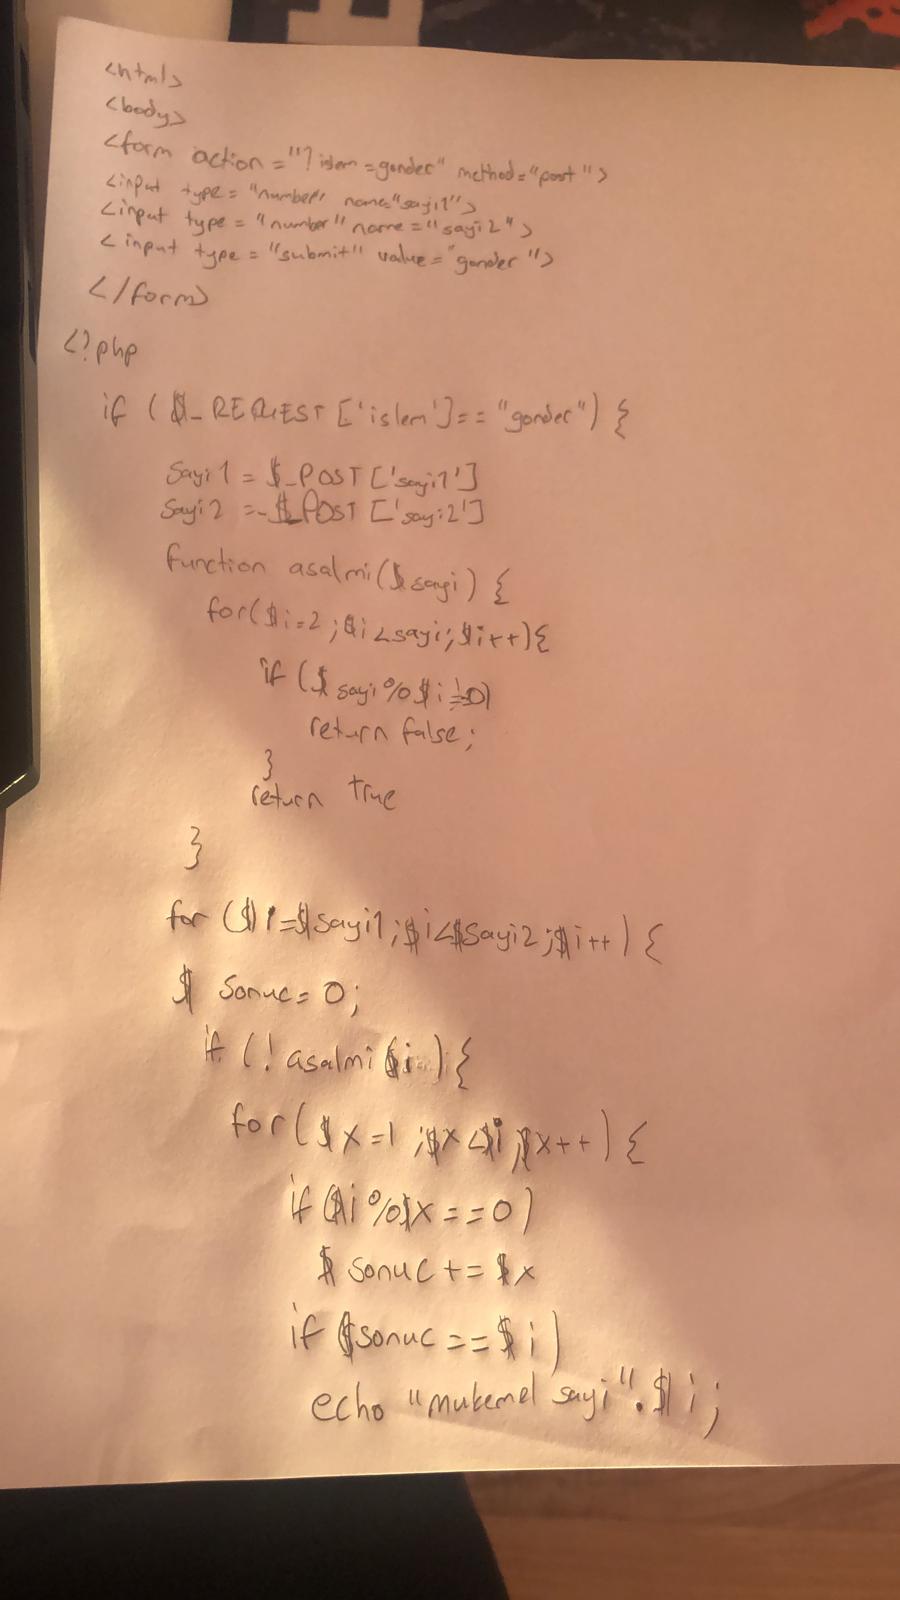 <html>
<body>
<form action="?islem=gonder" method="post">
<input type="number" name="sayi1">
<input type="number" name="sayi2">
<input type="submit" value="gonder">
</form>
<?php
if ($_REQUEST['islem']=="gonder") {
Sayi1 = $_POST['sayi1']
Sayi2 = $_POST['sayi2']
function asalmi($sayi) {
for($i=2;$i<sayi;$i++){
if ($sayi%$i!=0)
return false;
}
return true
}
for ($i=$sayi1;$i<$sayi2;$i++) {
$sonuc=0;
if (!asalmi($i)) {
for($x=1;$x<$i;$x++) {
if ($i%$x==0)
$sonuc+=$x
if ($sonuc==$i)
echo "mukemel sayi".$i;